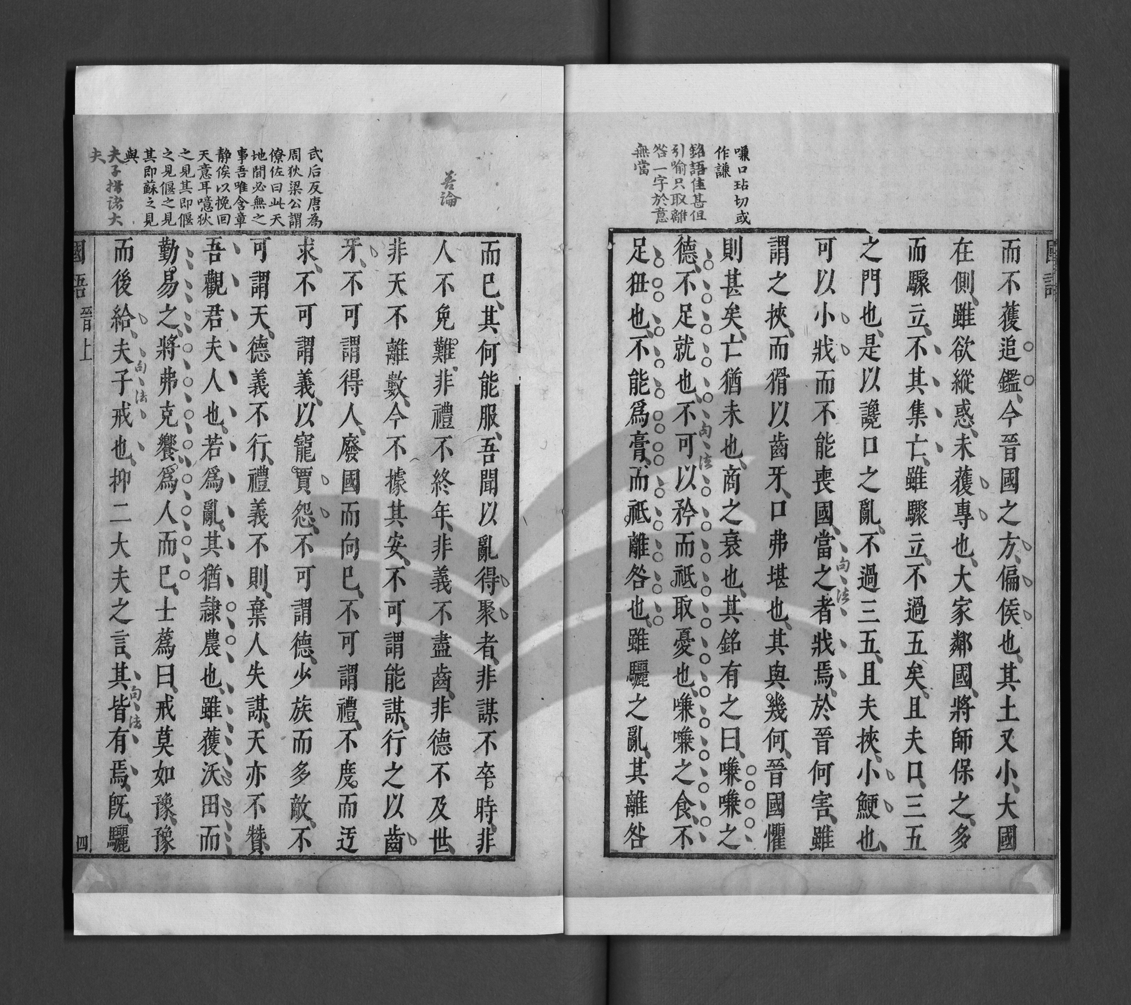 嗛口玷切或
作謙
銘語佳甚但
引喻只取離
咎一字於意
無當
國語
而不獲追鑑今晉國之方偏侯也其土又小大國
在側雖欲縱惑未獲專也大家鄰國將師保之多
而驟立不其集亡雖驟立不過五矣且夫口三五
之門也是以讒口之亂不過三五且夫挾小鯁也
可以小戕而不能喪國當之者戕焉於晉何害雖
謂之挾而猾以齒牙口弗堪也其與幾何晉國懼
則甚矣亡猶未也商之衰也其銘有之曰嗛嗛之
德不足就也不可以矜而祗取憂也嗛嗛之食不
足狃也不能爲膏而祗離咎也雖驪之亂其離咎
句法
句法
善論
武后反唐為
周狄梁公謂
僚佐曰此天
地間必無之
事吾唯含章
靜俟以挽回
天意耳噫狄
之見其即偃
之見偃之見
其即蘇之見
與
夫子指諸大
夫
而已其何能服吾聞以亂得聚者非謀不卒時非
人不免難非禮不終年非義不盡齒非德不及世
非天不離數今不據其安不可謂能謀行之以齒
牙不可謂得人廢國而向已不可謂禮不度而迂
求不可謂義以寵賈怨不可謂德少族而多敵不
可謂天德義不行禮義不則棄人失謀天亦不贊
吾觀君夫人也若爲亂其猶隸農也雖獲沃田而
勤易之將弗克饗爲人而已士蔿曰戒莫如豫豫
而後給夫子戒也抑二大夫之言其皆有焉旣驪
句法
句法
國語 晉上 四